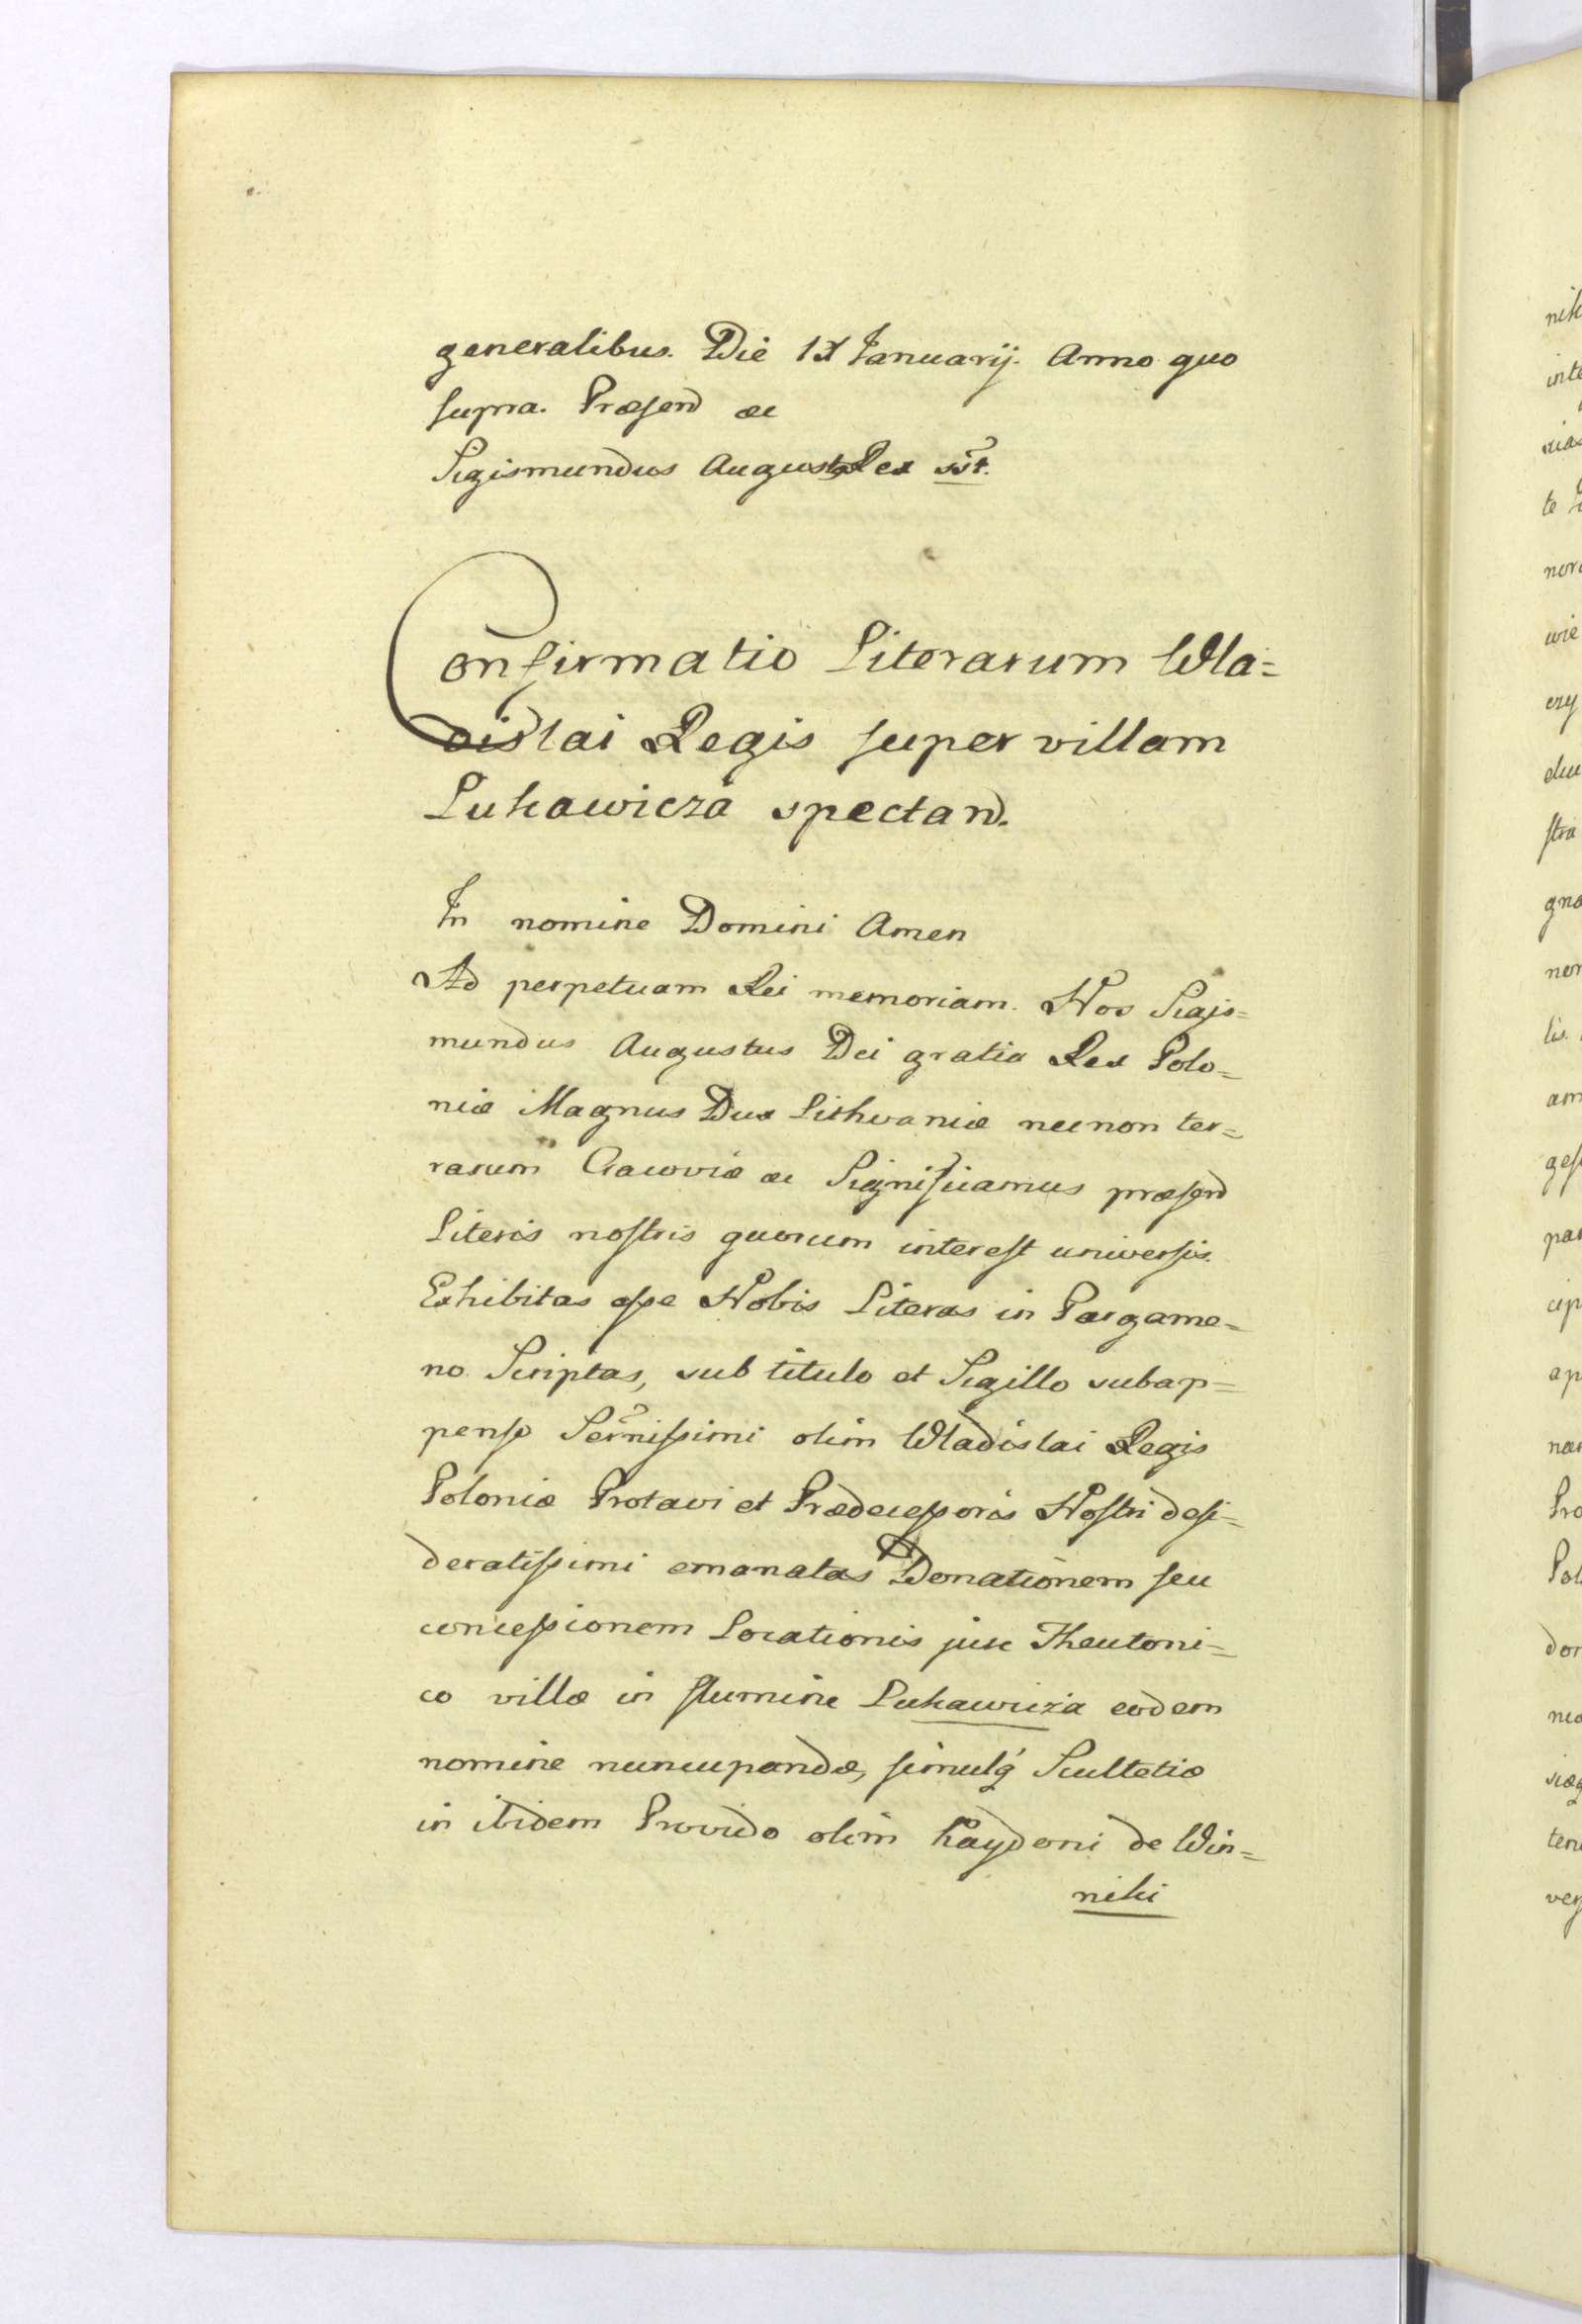 generalibus. Die 1X Januarij. Anno quo
supra. Præsend ac
Sigismundus August9 Rex sst.
Confirmatio Literarum Wla=
dislai Regis super villam
Lukawicza spectand.
In nomine Domini Amen
Ad perpetuam Rei memoriam. Nos Sigis=
mundus Augustus Dei gratia Rex Polo=
niæ Magnus Dux Lithvaniæ necnon ter=
rarum Cracoviæ ac Significamus præsend
Literis nostris quorum interest universis.
Exhibitas esse Nobis Literas in Pargame=
no Scriptas, sub titulo et Sigillo subap=
penso Sernissimi olim Wladislai Regis
Poloniæ Protavi et Prædecessoris Nostri desi=
deratissimi emanatas Donationem seu
concessionem Locationis jure Theutoni=
co villæ in flumine Lukawicza eodem
nomine nuncupandæ, simulq́ Scultetiæ
in ibidem Provido olim Haydoni de Win=
niki
nik